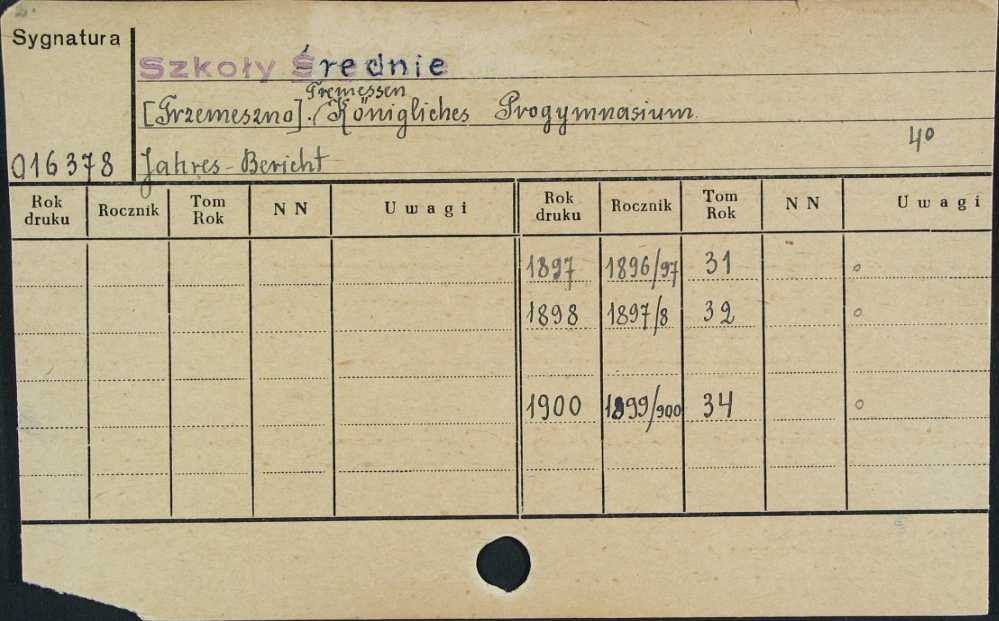 Sygnatura
Szkoły Średnie
Tremessen
[Trzemeszno]. Königliches Progymnasium.
4º
016378 Jahres-Bericht
Rok druku Rocznik Tom Rok N N Uwagi Rok druku Rocznik Tom Rok N N Uwagi
1897 1896/97 31 o
1898 1897/8 32 o
1900 1899/900 34 o